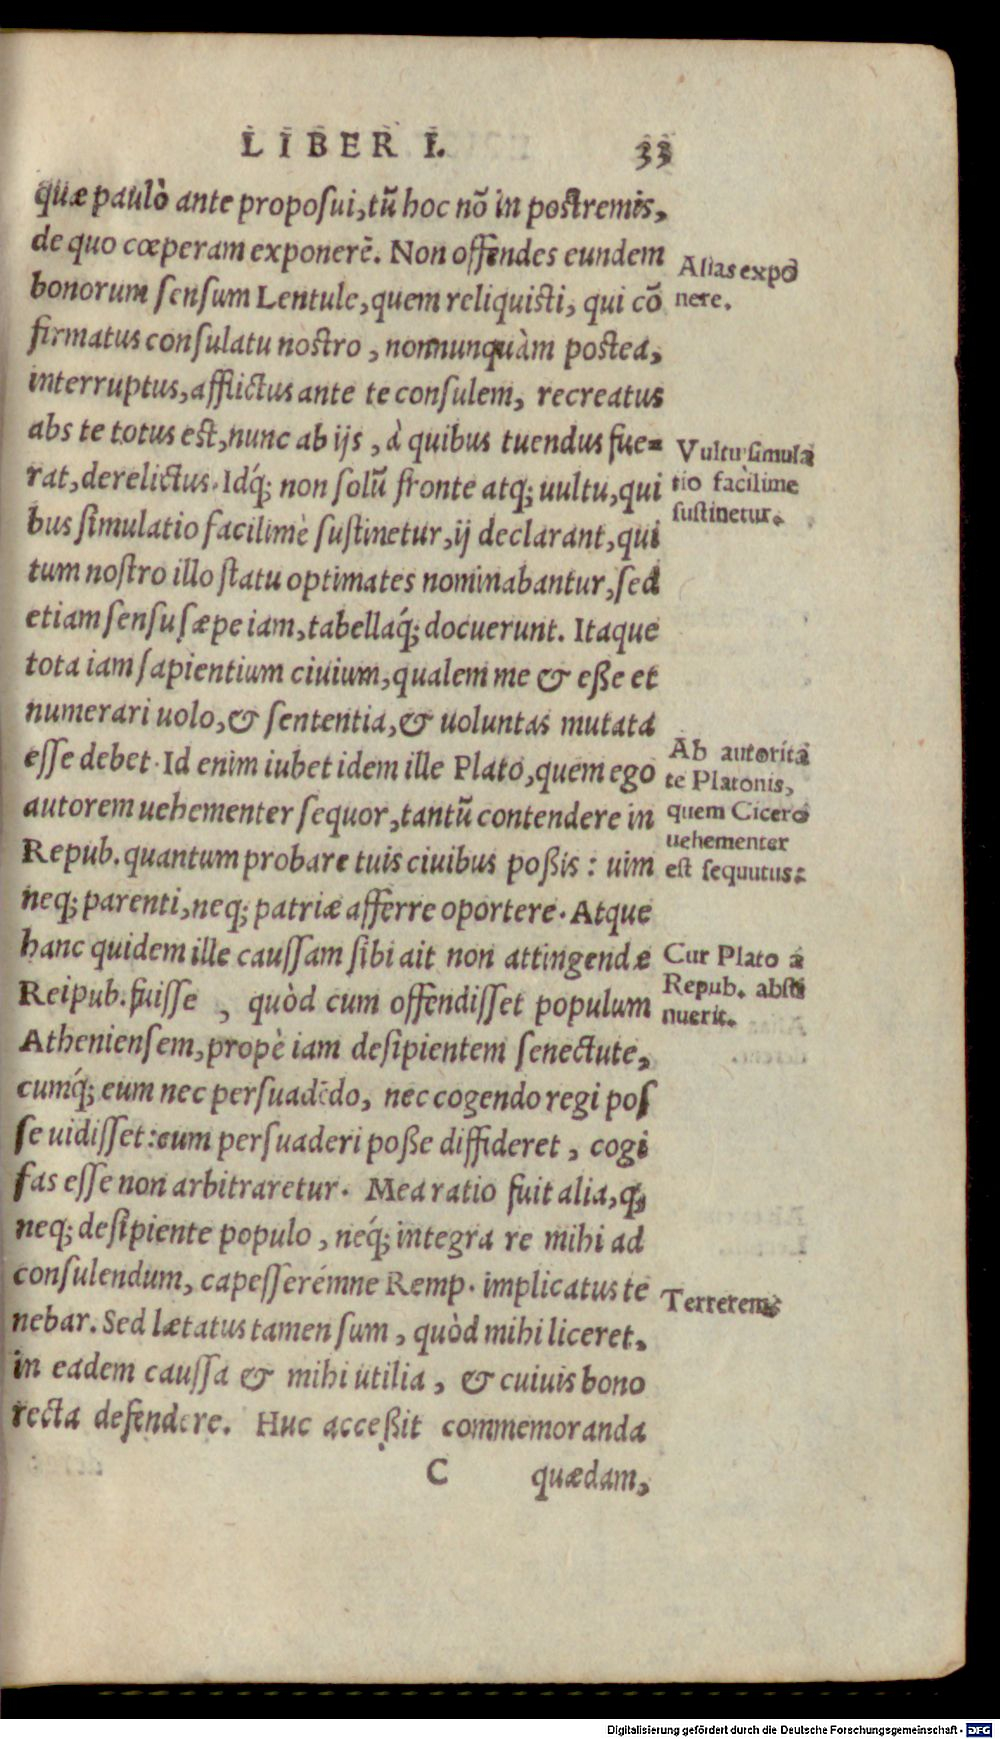 LIBER I. 33
quæ paulò ante proposui, tũ hoc nõ in postremis,
de quo cœperam exponerẽ. Non offendes eundem
bonorum sensum Lentule, quem reliquisti, qui cõ
firmatus consulatu nostro, nonnunquàm postea,
interruptus, afflictus ante te consulem, recreatus
abs te totus est, nunc ab ijs, à quibus tuendus fue=
rat, derelictus. Idq́; non solũ fronte atq; uultu, qui
bus simulatio facilimè sustinetur, ij declarant, qui
tum nostro illo statu optimates nominabantur, sed
etiam sensu sæpe iam, tabellaq́; docuerunt. Itaque
tota iam sapientium ciuium, qualem me & eße et
numerari uolo, & sententia, & uoluntas mutata
esse debet. Id enim iubet idem ille Plato, quem ego
autorem uehementer sequor, tantũ contendere in
Repub. quantum probare tuis ciuibus poßis: uim
neq; parenti, neq; patriæ afferre oportere. Atque
hanc quidem ille caussam sibi ait non attingendæ
Reipub. fuisse, quòd cum offendisset populum
Atheniensem, propè iam desipientem senectute,
cumq́; eum nec persuadẽdo, nec cogendo regi pos
se uidisset: cum persuaderi poße diffideret, cogi
fas esse non arbitraretur. Mea ratio fuit alia, q;
neq; desipiente populo, neq́; integra re mihi ad
consulendum, capesserémne Remp. implicatus te
nebar. Sed lætatus tamen sum, quòd mihi liceret,
in eadem caussa & mihi utilia, & cuiuis bono
recta defendere. Huc acceßit commemoranda
C quædam,
Alias expo
nere.
Vultu simula
tio facilime
sustinetur.
Ab autorita
te Platonis,
quem Cicero
uehementer
est sequutus.
Cur Plato á
Repub. absti
nuerit.
Terreremé
Digitalisierung gefördert durch die Deutsche Forschungsgemeinschaft - DFG